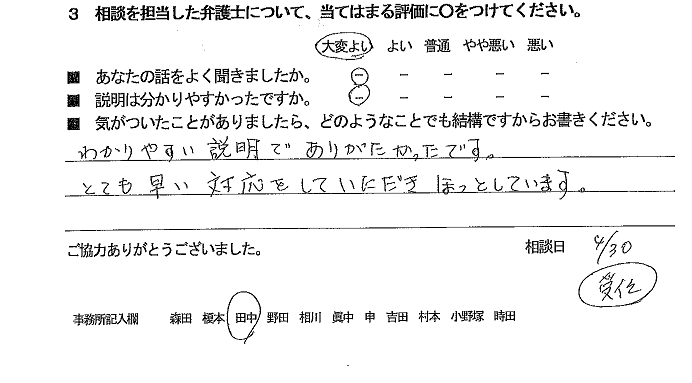 3 相談を担当した弁護士について、当てはまる評価に○をつけてください。
大変よい よい 普通 やや悪い 悪い
■ あなたの話をよく聞きましたか。 － － － － －
■ 説明は分かりやすかったですか。 － － － － －
■ 気がついたことがありましたら、どのようなことでも結構ですからお書きください。
わかりやすい説明でありがたかったです。
とても早い対応をしていただきほっとしています。
ご協力ありがとうございました。 相談日 4/30
受任
事務所記入欄 森田 榎本 田中 野田 相川 眞中 申 吉田 村本 小野塚 時田